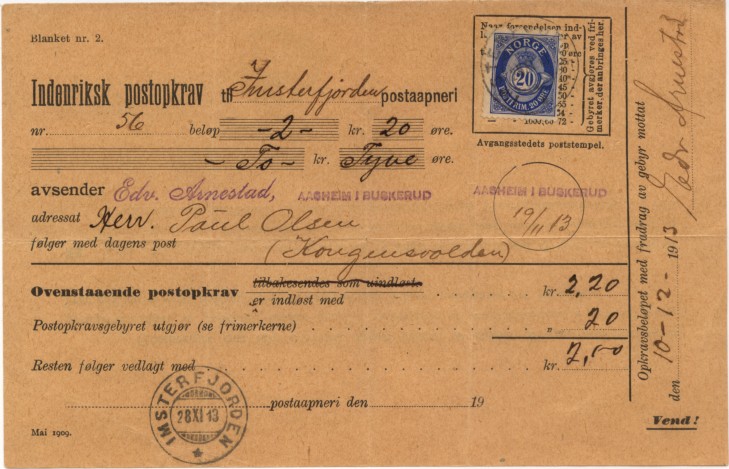 Blanket nr. 2.
Indenriksk postopkrav til Imsterfjorden postaapneri
nr. 56 beløp -2- kr. 20 øre.
- To - kr. Tyve øre.
avsender Edv. Arnestad, AASHEIM I BUSKERUD
adressat Herr. Paul Olsen
følger med dagens post (Kongensvolden)
Naar forsendelsen
NORGE
20
FRIM. 20 ØRE
Gebyret avgjøres ved frimerker, der anbringes her.
Avgangsstedets poststempel.
AASHEIM I BUSKERUD
19/11 13
Ovenstaaende postopkrav tilbakesendes som uindløst kr. 2,20
er indløst med
Postopkravsgebyret utgjør (se frimerkerne) " 20
Resten følger vedlagt med kr. 2,00
postaapneri den 19
IMSTERFJORDEN
28 XI 13
Mai 1909.
Vend!
Opkravsbeløpet med fradrag av gebyr mottat
den 10-12-1913
Edv Arnestad